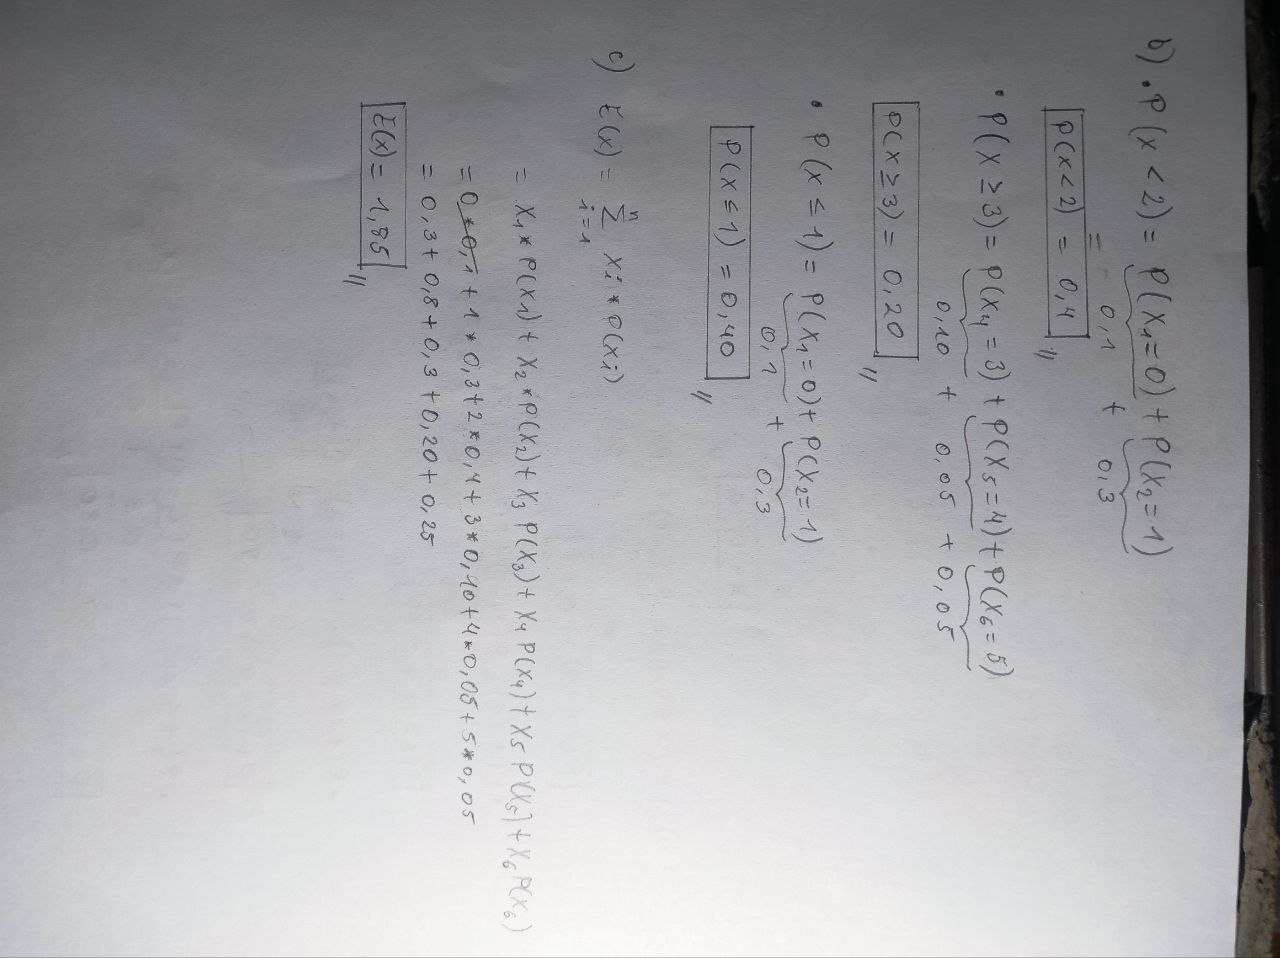 b) • P(x < 2) = P(x₁=0) + P(x₂=1)
= 0,1 + 0,3
P(x<2) = 0,4 //
• P(x ≥ 3) = P(x₄ = 3) + P(x₅ = 4) + P(x₆ = 5)
0,10 + 0,05 + 0,05
P(x ≥ 3) = 0,20 //
• P(x ≤ 1) = P(x₁ = 0) + P(x₂ = 1)
0,1 + 0,3
P(x ≤ 1) = 0,40 //
c) E(x) = Σ xi * P(xi)
n
i=1
= x₁ * P(x₁) + x₂ * P(x₂) + x₃ P(x₃) + x₄ P(x₄) + x₅ P(x₅) + x₆ P(x₆)
= 0 * 0,1 + 1 * 0,3 + 2 * 0,4 + 3 * 0,10 + 4 * 0,05 + 5 * 0,05
= 0,3 + 0,8 + 0,3 + 0,20 + 0,25
E(x) = 1,85 //